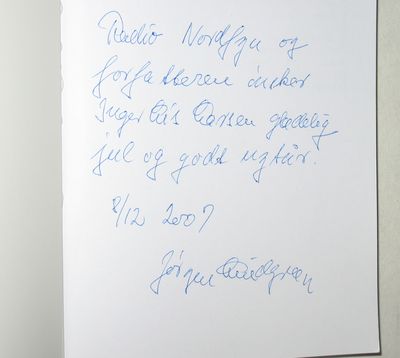 Radio Nordfyn og
forfatteren ønsker
Inger Liis Larsen glædelig
jul og godt nytår.
8/12 2007
Jørgen Lindgreen